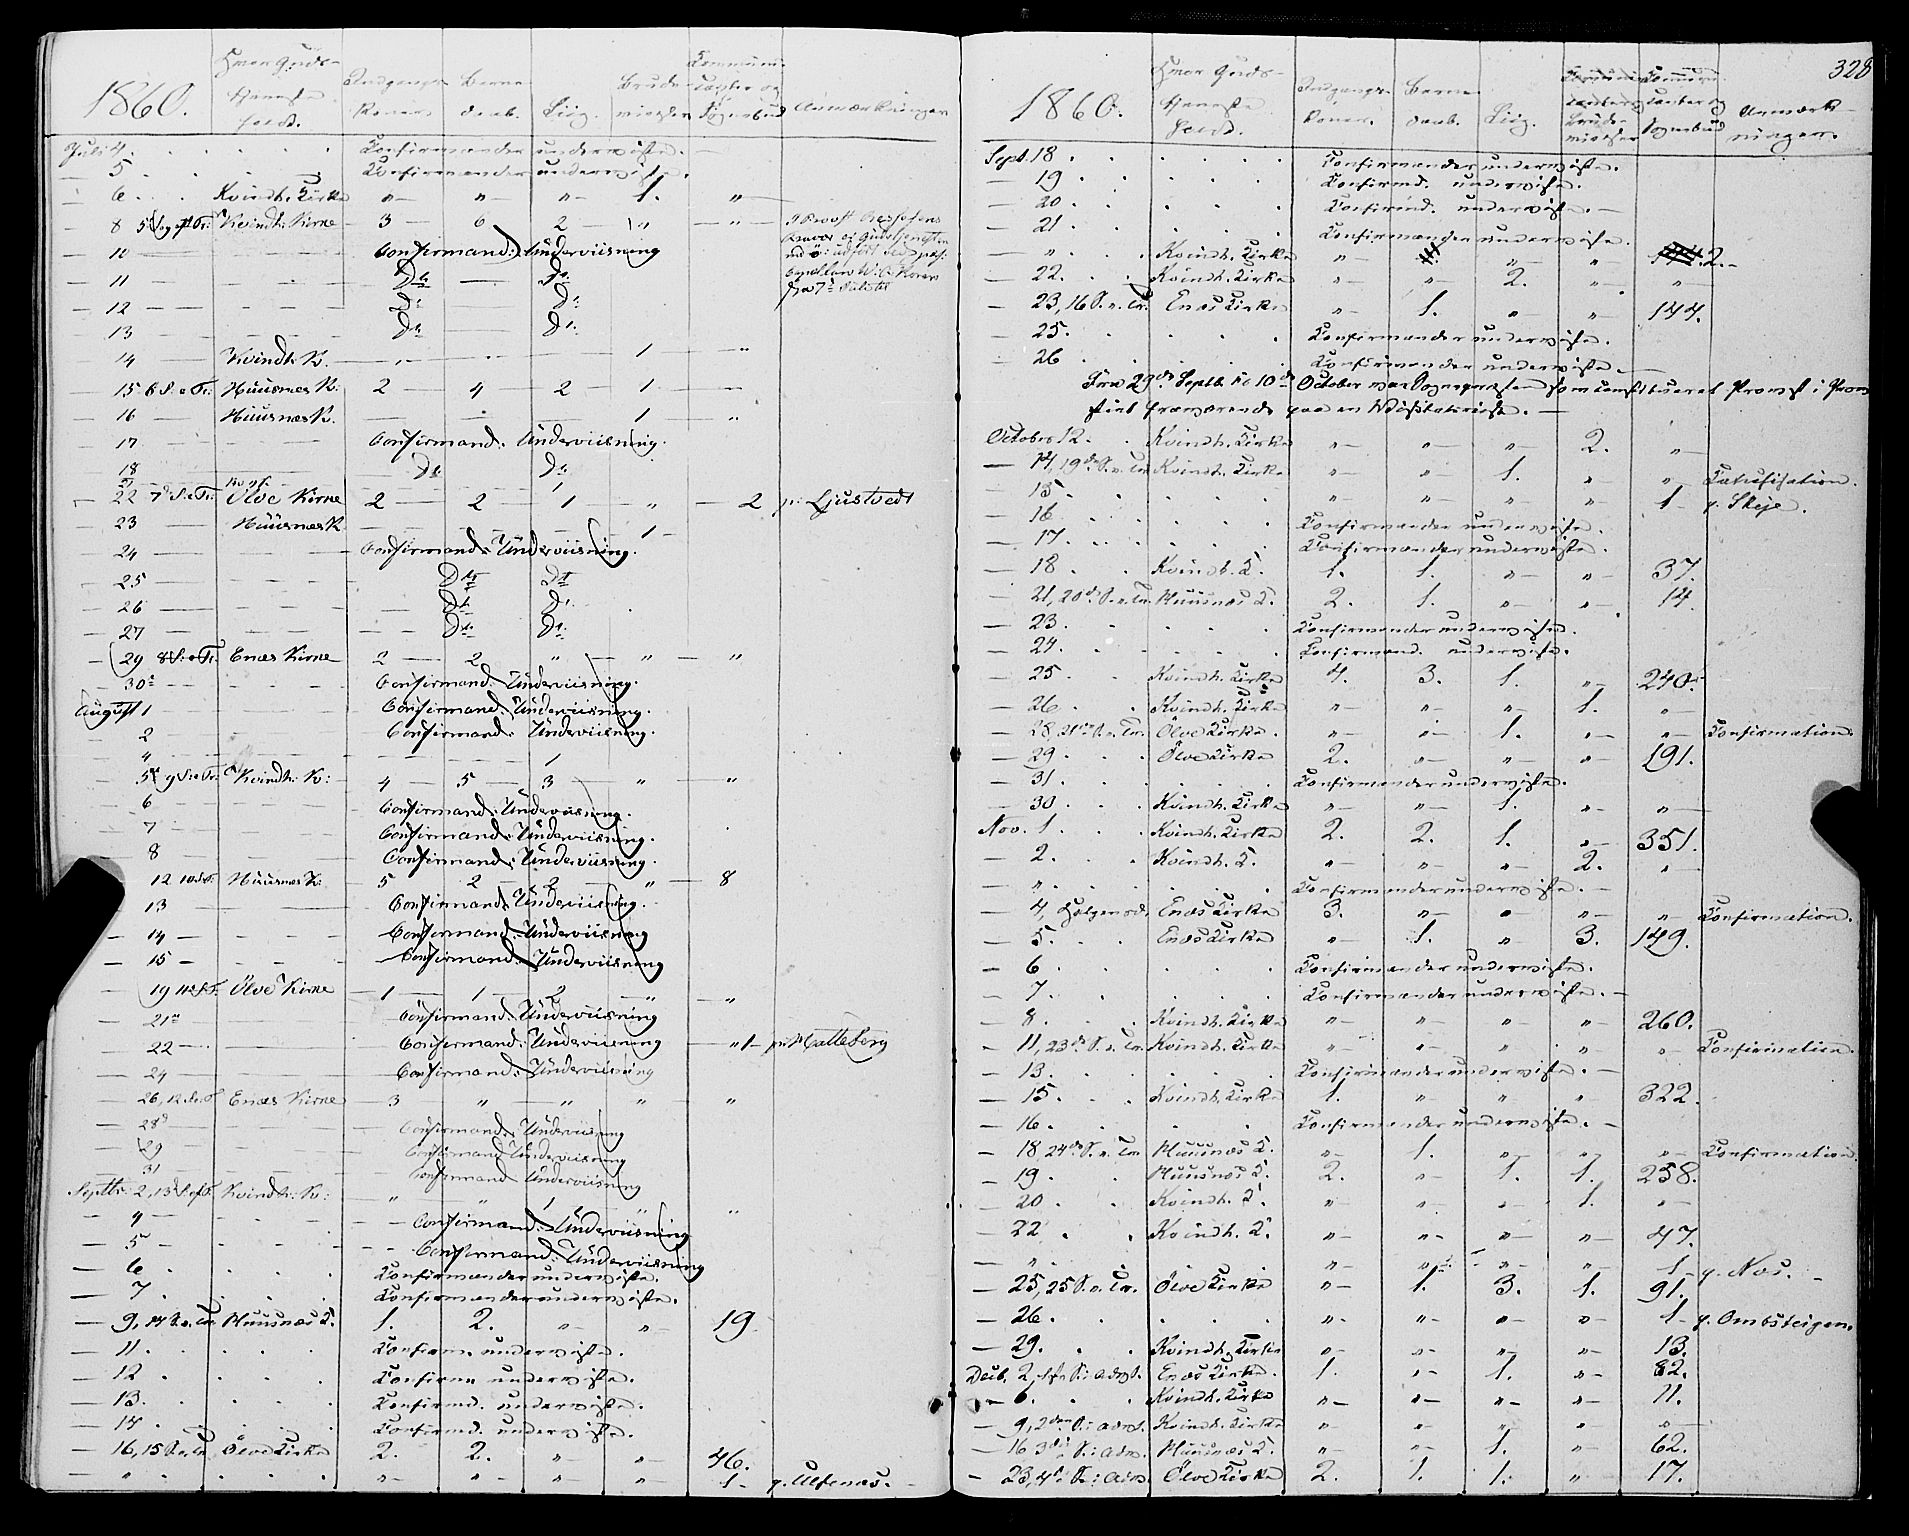 1860.
Hvor Guds-
tieneste
holdt.
Indgangs-
Koner.
Barne
daab.
Liig.
Brude-
vielser
Communi-
canter og
Sognebud
Anmærkninger
Juli 4. Confirmander underviste. —
— 5 Confirmander underviste.
— 6 Kvindh. Kirke " " " 1. "
— 8 5 S. eft Tr. Kvindh: Kirke 3 — 6 2 — " — "
— 10 Confirmand: Underviisning
— 11 Do Do
— 12 Do Do
— 13 Do Do
14 Kvindh: K. 1 "
— 15 6 S. e Tr: Huusnes K: 2 4 2 1
16 Huusnes K. 1 "
17 Confirmand: Underviisning.
18 Do Do
— 22 7 S. e Tr: Ølve Kirke 2 — 2 — 1 " — 2 p: Ljustvedt
— 23 Huusnes K 1
— 24 Confirmand: Underviisning.
— 25 Do Do
— 26 Do Do
— 27 Do Do
— 29 8 S. e Tr. Enæs Kirke 2 2 " " "
— 30 Confirmand: Underviisning.
August 1 Confirmand: Underviisning.
— 2 Confirmand: Underviisning.
— 4 1
— 5 9 S. e Tr: Kvindh: K: 4 — 5 — 3 — " — "
— 6 Confirmand: Underviisning.
— 7 Confirmand: Underviisning.
8 Confirmand: Underviisning.
12 10 S. e T. Huusnes K: 5 2 2 " 8
13 Confirmand: Underviisning.
— 14 Confirmand: Underviisning
— 15 Confirmand: Underviisning
19 11 S. e T. Ølve Kirke — 1 — 1 — 2 — " — "
21 Confirmand: Underviisning
— 22 Confirmand: Underviisning — " 1 — p: Malteberg
— 24 Confirmand: Underviisning
— 26, 12 S. e T Enæs Kirke — 3 " " " "
— 28 Confirmand: Underviisning
— 29 Confirmand: Underviisning
— 31 Confirmand: Underviisning
Septbr: 2, 13 S. e T. Kvindh: K: " " 1 " "
— 4 Confirmand: Underviisning
— 5 Confirmand: Underviisning
— 6 Confirmander underviste.
— 7 Confirmander underviste.
— 9, 14 S. e. Tr. Huusnæs K. 1. 2. " " 19.
— 11. Confirm. underviste.
— 12 Confirm. underviste.
— 13. Confirmd. underviste.
— 14 Confirmd. underviste.
— 16, 15 S. e. Tr Ølve Kirke 2. 2. " " 46.
— " " " " " 1. p. Ulfenæs. —
328
1860.
Hvor Guds-
tieneste
holdt.
Indgangs-
Koner.
Barne-
daab.
Liig.
Brude-
vielser
Sognebud
Anmærk-
ninger.
Sept. 18 Confirmander underviste.
— 19 Confirmd. underviste.
— 20 Confirmd. underviste. —
— 21 Confirmander underviste.
— " Kvindh. Kirke " " " 2. —
— 22. Kvindh. Kirke " " 2. " "
— 23, 16 S. e. Tr. Enæs Kirke " 1. " " 144.
— 25. Confirmander underviste.
— 26 Confirmander underviste. —
Fra 29de Septb. til 10de October var Sognepræsten som constitueret Provst i Prov-
stiet fraværende paa en Visitatsreise. —
October 12. Kvindh. Kirke " " " 2. "
— 14, 19de S. e. Tr Kvindh. Kirke " " 1. " " Catechisation.
— 15. " " " " 1 p. Skeje.
— 16 Confirmander underviste.
— 17. Confirmander underviste.
— 18 Kvindh. K. 1. 1. " " 37.
— 21, 20de S. e. Tr. Huusnæs K. 2. 1. " " 14.
— 23. Confirmander underviste.
— 24. Confirmand. underviste.
— 25 Kvindh. Kirke 4. 3. 1. " 240.
— 26 Kvindh. Kirke " " " 1. "
— 28, 21de S. e. Tr. Ølve Kirke. " " 1. " " Confirmation.
— 29. Ølve Kirke 2. " " " 191.
— 31. Confirmander underviste.
— 30 Kvindh. Kirke " " 1. " "
Nov. 1. Kvindh. Kirke 2. 2. 1. " 351.
— 2. Kvindh. K. " " " 2. "
— " Confirmander underviste. —
— 4, Helgensd. Enæs Kirke 3. " " " " Confirmation.
— 5. Enæs Kirke " 1. " 3. 149.
— 6 Confirmander underviste.
— 7. Confirmander underviste. —
— 8. Kvindh. Kirke " " " " 260.
— 11, 23de S. e. Tr. Kvindh. Kirke " " " " " Confirmation.
— 13. Confirmander underviste. —
— 15. Kvindh. Kirke 1. " " " 322.
— 16. Confirmander underviste. —
— 18, 24de S. e. Tr. Huusnæs K. " 1. " " " Confirmation.
— 19. Huusnæs K. 2. " 1. 1. 258.
— 20 Kvindh. K. " " " 1. "
— 22 Kvindh. K. " " " " 47.
— " " " " " 1 p. Næs. —
— 25, 25 S. e. Tr. Ølve Kirke " 1. 3. 1. 91.
— 26. " " " " 1 p. Ombsteigen.
— 29. Kvindh. Kirke " " " " 13.
Decb. 2, 1ste S. i adv. Enæs Kirke. 1. " 1. " 82.
— 6. Kvindh. Kirke " " " " 11.
— 9, 2den S. i adv. Kvindh. Kirke " " " " "
— 16 3die S. i adv. Huusnæs K. " " 1. " 62.
— 23, 4de S. i adv. Ølve Kirke 2. 1. 1. " 17.